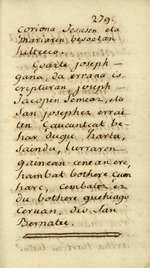 279.
Coriona Jesusen eta
Mariaren besoetan
hiltceco.
Goazte Joseph-
gana, da errana is-
cripturan, Joseph-
Jacopen semeaz, eta
San Josephez errai-
ten. Gauçunteat be-
har dugu, hartu,
saindu, lurraren
gainean ere,
hambat bothere cuen
harc, cembatez ez
du bothere guehiago
Ceruan, dio San
Bernatec.